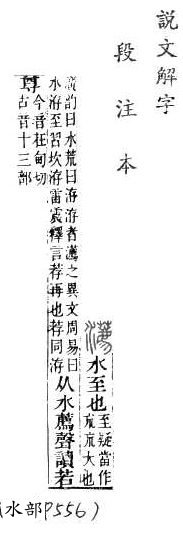 説文解字
段注本
瀳
水至也
至疑當作
巟巟大也
廣韵曰水荒曰洊洊者瀳之異文周易曰
水洊至習坎洊雷震釋言荐再也荐同洊
从水薦聲讀若
尊
今音在甸切
古音十三部
(水部P556)